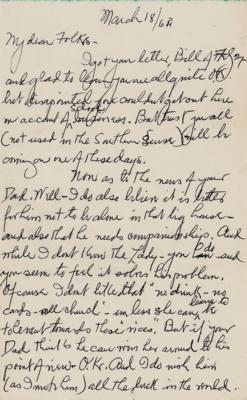 March 18/68
My dear Folks -
I got your letter, Bill
and glad to you are all quite O.K.
but disappointed you couldn't get out here
on account of School But trust you all
(not used in the Southern sense) will be
coming one of these days.
Now as to the news of your
Dad. Well - I do also believe it is better
for him not to be alone in that big house -
and also that he needs companionship. And
while I don't know the lady - you do and
you seem to feel it solves his problem.
Of course I don't like that "no drink - no
cards - all church" - unless she can learn to be
tolerant towards these "vices". But if your
Dad thinks he can win her around to his
point of view O.K. And I do wish him
(as I must him) all the luck in the world.